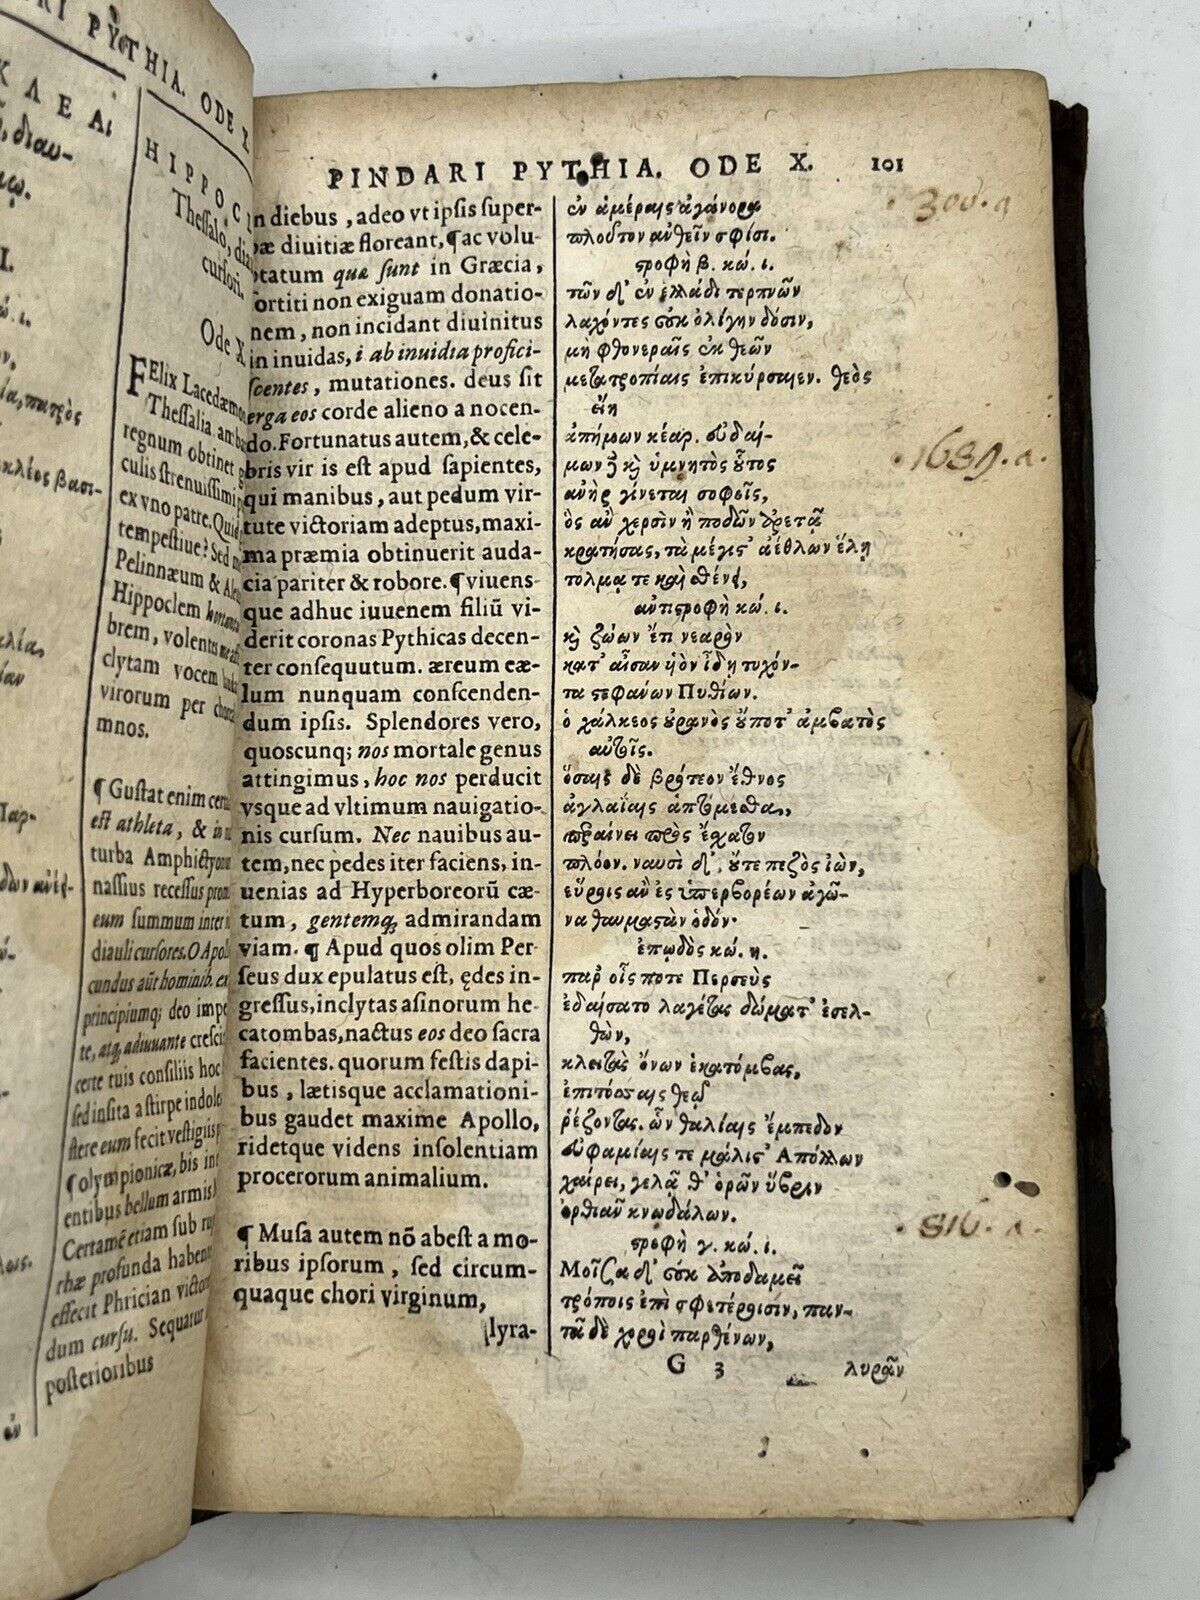 RI PYTHIA. ODE X.
ΚΛΕΑ
διαυ-
HIPPOCL
Thessalo, diau
cursori.
Ode X.
FElix Lacedæmo
Thessalia. amba
regnum obtinet
culis strenuissimi
ex vno patre. Quid
tempestiue? Sed
Pelinnæum & Ale
Hippoclem
brem, volentes
clytam vocem
virorum per chor
mnos.
¶ Gustat enim cer
est athleta, & in
turba Amphictyon
nassius recessus
eum summum inter
diauli cursores. O Apol
cundus aūt hominib. ex
principiumq; deo impe
te, atq, adiuuante cresc
certe tuis consiliis hoc
sed insita a stirpe indole
stere eum fecit vestigiis
¶ olympionicæ, bis in
entibus bellum armis
Certamē etiam sub ru
rhæ profunda haben
effecit Phrician victor
dum cursu. Sequatur
posterioribus
PINDARI PYTHIA. ODE X. 101
in diebus, adeo vt ipsis super-
bæ diuitiæ floreant, ¶ ac volu-
ptatum quæ sunt in Græcia,
sortiti non exiguam donatio-
nem, non incidant diuinitus
in inuidas, i ab inuidia profici-
scentes, mutationes. deus sit
erga eos corde alieno a nocen-
do. Fortunatus autem, & cele-
bris vir is est apud sapientes,
qui manibus, aut pedum vir-
tute victoriam adeptus, maxi-
ma præmia obtinuerit auda-
cia pariter & robore. ¶ viuens-
que adhuc iuuenem filiū vi-
derit coronas Pythicas decen-
ter consequutum. æreum cæ-
lum nunquam conscenden-
dum ipsis. Splendores vero,
quoscunq; nos mortale genus
attingimus, hoc nos perducit
vsque ad vltimum nauigatio-
nis cursum. Nec nauibus au-
tem, nec pedes iter faciens, in-
uenias ad Hyperboreorū cæ-
tum, gentemq, admirandam
viam. ¶ Apud quos olim Per-
seus dux epulatus est, ędes in-
gressus, inclytas asinorum he-
catombas, nactus eos deo sacra
facientes. quorum festis dapi-
bus, lætisque acclamationi-
bus gaudet maxime Apollo,
ridetque videns insolentiam
procerorum animalium.
¶ Musa autem nō abest a mo-
ribus ipsorum, sed circum-
quaque chori virginum,
lyra-
ἐν ἁμέραις ἀγάνορα
πλοῦτον ἀνθεῖν σφίσι.
στροφὴ β. κώ. ι.
τῶν δ' ἐν ἑλλάδι τερπνῶν
λαχόντες οὐκ ὀλίγην δόσιν,
μὴ φθονεραῖς ἐκ θεῶν
μετατροπίαις ἐπικύρσαιεν. θεὸς
εἴη
ἀπήμων κέαρ. εὐδαί-
μων δὲ καὶ ὑμνητὸς οὗτος
ἀνὴρ γίνεται σοφοῖς,
ὃς ἂν χερσὶν ἢ ποδῶν ἀρετᾷ
κρατήσας, τὰ μέγιστ' ἀέθλων ἕλῃ
τόλμᾳ τε καὶ σθένει,
ἀντιστροφὴ κώ. ι.
καὶ ζώων ἔτι νεαρὸν
κατ' αἶσαν υἱὸν ἴδῃ τυχόν-
τα στεφάνων Πυθίων.
ὁ χάλκεος οὐρανὸς οὔποτ' ἀμβατὸς
αὐτοῖς.
ὅσαις δὲ βρότεον ἔθνος
ἀγλαΐαις ἁπτόμεσθα,
περαίνει πρὸς ἔσχατον
πλόον. ναυσὶ δ', οὔτε πεζὸς ἰὼν,
εὕροις ἂν ἐς ὑπερβορέων ἀγῶ-
να θαυματὰν ὁδόν·
ἐπῳδὸς κώ. η.
παρ' οἷς ποτε Περσεὺς
ἐδαίσατο λαγέτας δώματ' ἐσελ-
θὼν,
κλειτὰς ὄνων ἑκατόμβας,
ἐπιτόσσαις θεῷ
ῥέζοντας. ὧν θαλίαις ἔμπεδον
εὐφαμίαις τε μάλιστ' Ἀπόλλων
χαίρει, γελᾷ θ' ὁρῶν ὕβριν
ὀρθίαν κνωδάλων.
στροφὴ γ. κώ. ι.
Μοῖσα δ' οὐκ ἀποδαμεῖ
τρόποις ἐπὶ σφετέροισιν, παν-
τᾶ δὲ χοροὶ παρθένων,
G 3 λυρᾶν
300. a
1689. a.
816. a.